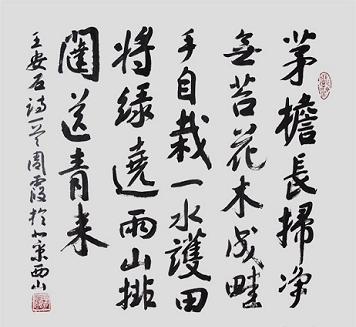 茅檐長掃净
無苔花木成畦
手自栽一水護田
將緑遶兩山排
闥送青来
王安石詩一首周霞於北京西山